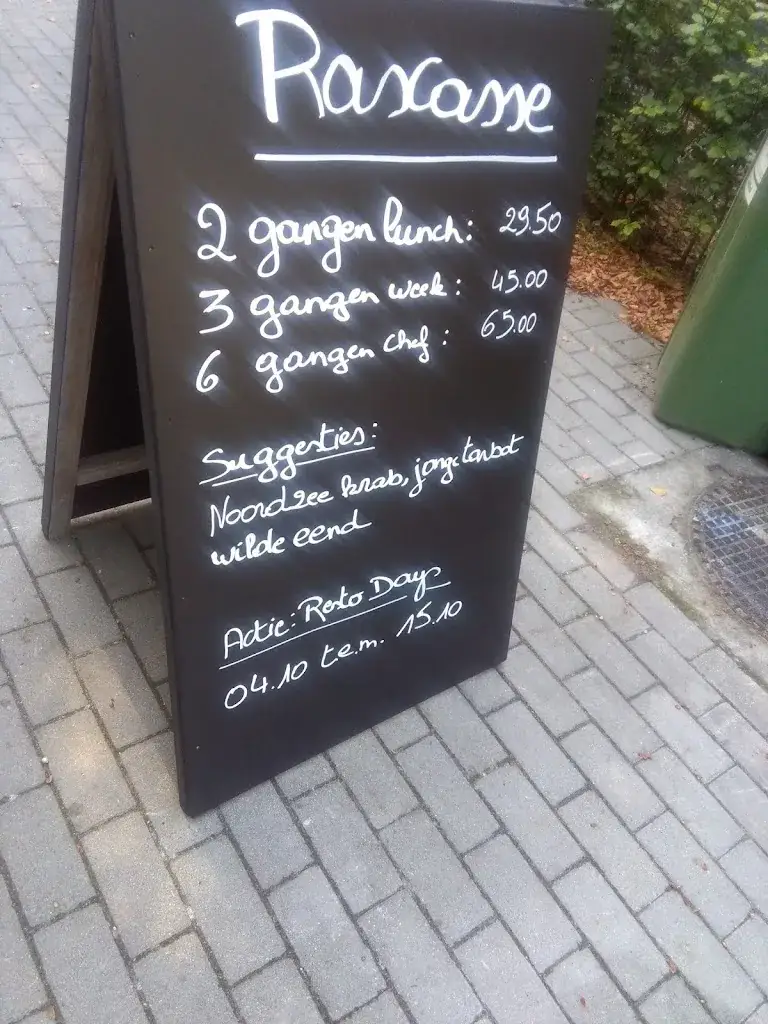 Rascasse
2 gangen lunch: 29.50
3 gangen week: 45.00
6 gangen chef: 65.00
Suggesties:
Noordzee krab, jonge tarbot
wilde eend
Actie: Resto Days
04.10 t.e.m. 15.10